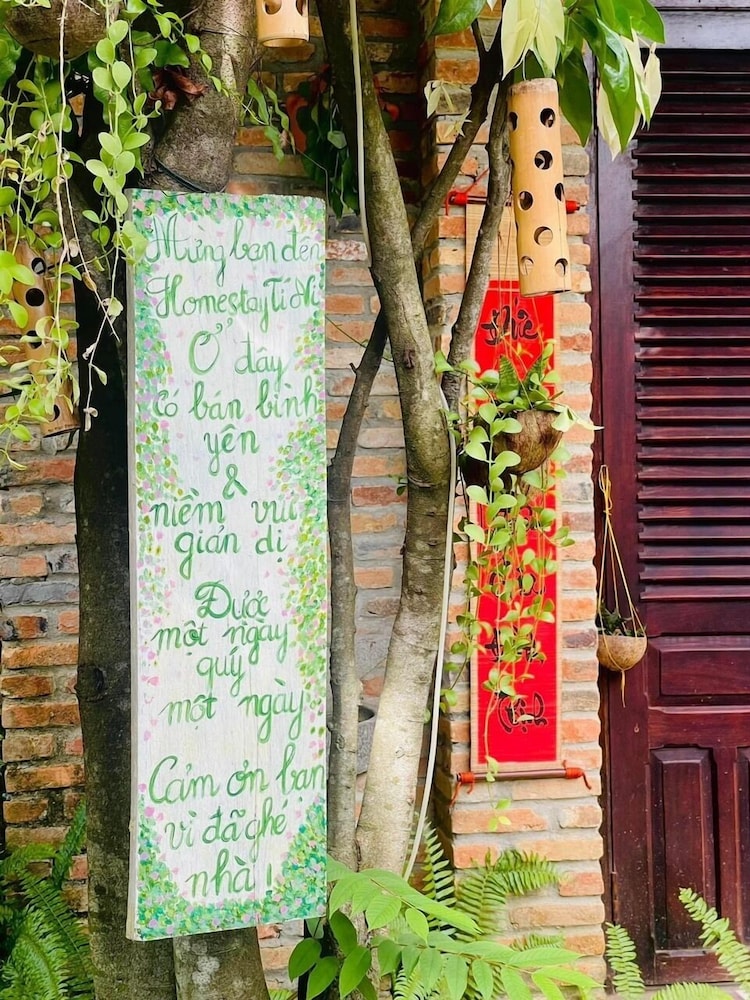 Mừng bạn đến
Homestay Tí Nị
Ở đây
có bán bình
yên
&
niềm vui
giản dị
Được
một ngày
quý
một ngày
Cảm ơn bạn
vì đã ghé
nhà!